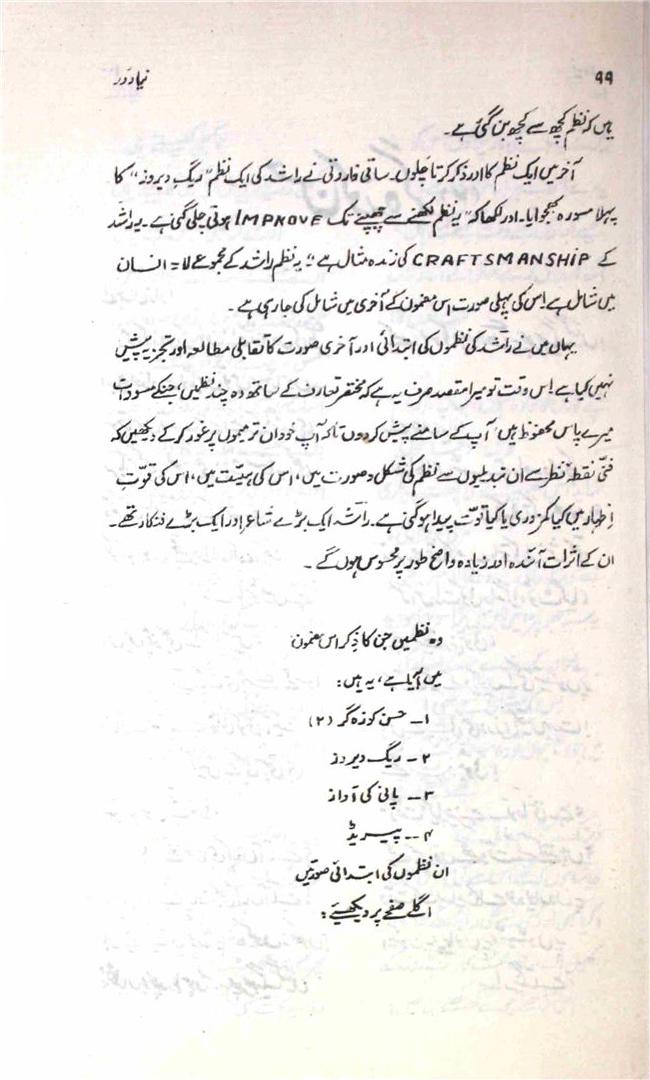 ۹۹ نیا دَور
ہیں کہ نظم کچھ سے کچھ بن گئی ہے۔
آخر میں ایک نظم کا اور ذکر کرتا چلوں۔ ساقی فاروقی نے راشد کی ایک نظم "ریگِ دیروز" کا
پہلا مسودہ بھجوایا۔ اور لکھا کہ "یہ نظم لکھنے سے چھپنے تک IMPROVE ہوتی چلی گئی ہے۔ یہ راشد
کے CRAFTSMANSHIP کی زندہ مثال ہے"؛ یہ نظم راشد کے مجموعے لا = انسان
میں شامل ہے اِس کی پہلی صورت اس مضمون کے آخری میں شامل کی جا رہی ہے۔
یہاں میں نے راشد کی نظموں کی ابتدائی اور آخری صورت کا تقابلی مطالعہ اور تجزیہ پیش
نہیں کیا ہے اِس وقت تو میرا مقصد صرف یہ ہے کہ مختصر تعارف کے ساتھ وہ چند نظمیں، جنکے مسودات
میرے پاس محفوظ ہیں، آپ کے سامنے پیش کر دوں تاکہ آپ خود ان ترمیموں پر غور کر کے دیکھیں کہ
فنّی نقطۂ نظر سے ان تبدیلیوں سے نظم کی شکل و صورت میں، اس کی ہیئت میں، اس کی قوّتِ
اِظہار میں کیا کمزوری یا کیا قوّت پیدا ہو گئی ہے۔ راشد ایک بڑے شاعر اور ایک بڑے فنکار تھے۔
ان کے اثرات آئندہ اور زیادہ واضح طور پر محسوس ہوں گے۔
وہ نظمیں جن کا ذِکر اس مضمون
میں آیا ہے، یہ ہیں:
۱۔ حسن کوزہ گر (۲)
۲۔ ریگ دیروز
۳۔ پانی کی آواز
۴۔۔ پیریڈ
ان نظموں کی ابتدائی صورتیں
اگلے صفحے پر دیکھیے: